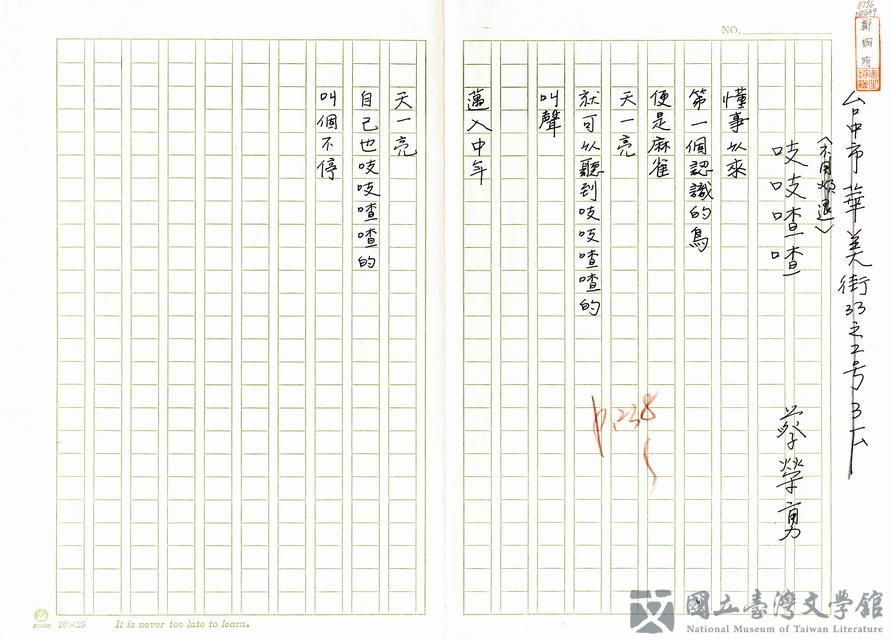 NO.
台中市華美街33之2号3F
〈不用煩退〉
吱吱喳喳
蔡榮勇
懂事以來
第一個認識的鳥
便是麻雀
天一亮
就可以聽到吱吱喳喳的
叫聲
邁入中年
天一亮
自己也吱吱喳喳的
叫個不停
p.238
20×25
It is never too late to learn.
國立臺灣文學館
National Museum of Taiwan Literature